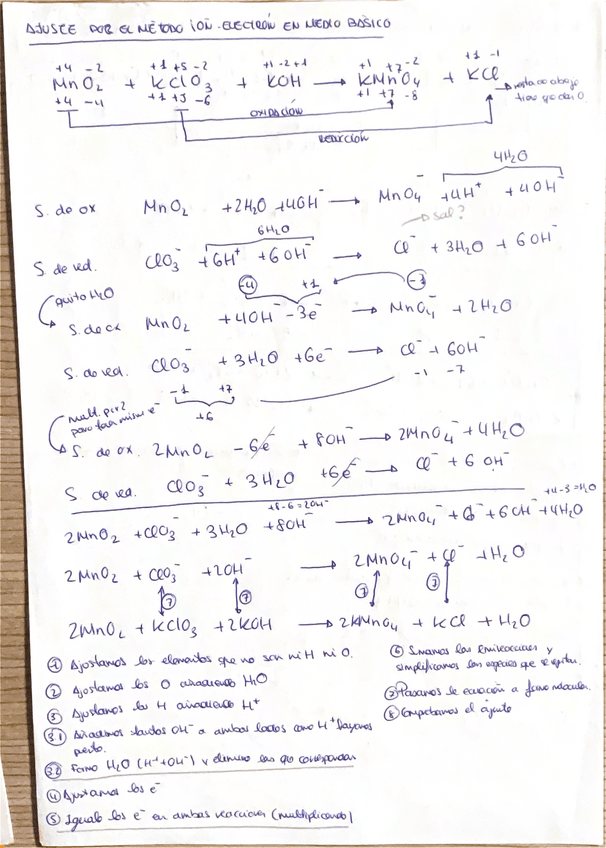 AJUSTE POR EL MÉTODO ION-ELECTRÓN EN MEDIO BÁSICO
+4 -2 +1 +5 -2 +1 -2 +1 +1 +7 -2 +1 -1
MnO₂ + KClO₃ + KOH → KMnO₄ + KCl
+4 -4 +1 +5 -6 +1 +7 -8
→ resta abajo tiene que dar 0.
OXIDACIÓN
REDUCCIÓN
4H₂O
S. de ox MnO₂ + 2H₂O + 4OH⁻ → MnO₄⁻ + 4H⁺ + 4OH⁻
6H₂O → sal?
S. de red. ClO₃⁻ + 6H⁺ + 6OH⁻ → Cl⁻ + 3H₂O + 6OH⁻
quito H₂O -4 +1 -1
S. de ox MnO₂ + 4OH⁻ - 3e⁻ → MnO₄⁻ + 2H₂O
S. de red. ClO₃⁻ + 3H₂O + 6e⁻ → Cl⁻ + 6OH⁻
-1 +7 -1 -7
+6
mult. por 2 para tener mismo e⁻
S. de ox. 2MnO₂ - 6e⁻ + 8OH⁻ → 2MnO₄⁻ + 4H₂O
S de red. ClO₃⁻ + 3H₂O + 6e⁻ → Cl⁻ + 6OH⁻
+8-6=2OH⁻ +4-3=H₂O
2MnO₂ + ClO₃⁻ + 3H₂O + 8OH⁻ → 2MnO₄⁻ + Cl⁻ + 6OH⁻ + 4H₂O
2MnO₂ + ClO₃⁻ + 2OH⁻ → 2MnO₄⁻ + Cl⁻ + H₂O
⑦ ⑦ ⑦ ⑦
2MnO₂ + KClO₃ + 2KOH → 2KMnO₄ + KCl + H₂O
① Ajustamos los elementos que no son ni H ni O.
② Ajustamos los O añadiendo H₂O
③ Ajustamos los H añadiendo H⁺
3.1 Añadimos tantos OH⁻ a ambos lados como H⁺ hayamos puesto.
3.2 Formo H₂O (H⁺+OH⁻) y elimino las que correspondan
④ Ajustamos los e⁻
⑤ Igualo los e⁻ en ambas reacciones (multiplicando)
⑥ Sumamos las semirreacciones y simplificamos las especies que se repitan.
⑦ Pasamos la ecuación a forma molecular.
⑧ Comprobamos el ajuste